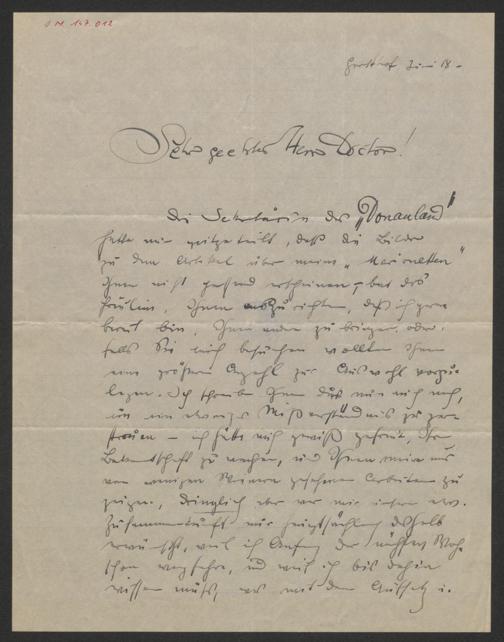 Juni 18 –
Sehr geehrter Herr Doctor!
Die Sekretärin des „Donauland"
hatte mir mitgeteilt, daß die Bilder
zu dem Artikel über meine „Marionetten"
Ihnen nicht passend erscheinen, – bat das
Fräulein, Ihnen auszurichten, daß ich gern
bereit bin, Ihnen andere zu bringen, oder,
falls Sie mich besuchen wollten Ihnen
eine größere Anzahl zur Auswahl vorzu-
legen. Ich schreibe Ihnen dies nun noch,
um ein etwaiges Mißverständnis zu zer-
streuen – ich hätte mich gewiß gefreut, Ihre
Bekanntschaft zu machen, und Ihnen meine nur
von wenigen Wienern gesehenen Arbeiten zu
zeigen, dringlich aber war mir eine
Zusammenkunft nur hauptsächlich deshalb
erwünscht, weil ich Anfang der nächsten Woche
schon wegfahre, und weil ich bis dahin
wissen muß, was mit dem Aufsatz u.